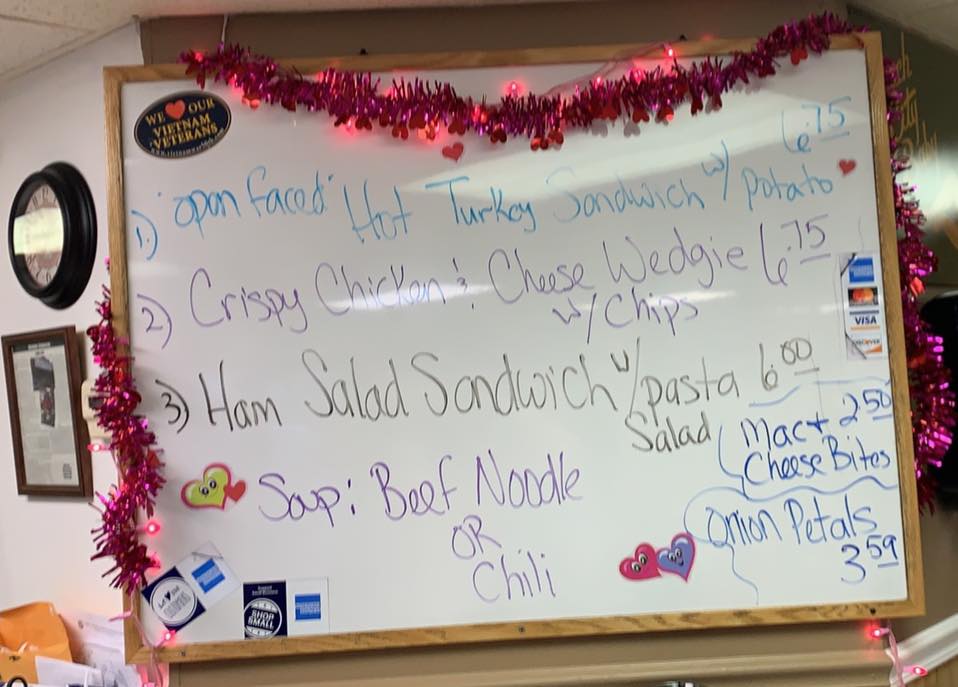 WE ❤ OUR
VIETNAM
VETERANS
6.75
1.) "open faced" Hot Turkey Sandwich w/ potato
2) Crispy Chicken & Cheese Wedgie 6.75
w/ Chips
3) Ham Salad Sandwich w/ pasta 6.00
Salad
Mac + 2.50
Cheese Bites
Soup: Beef Noodle
OR
Chili
Onion Petals
3.59
VISA
DISCOVER
SHOP
SMALL